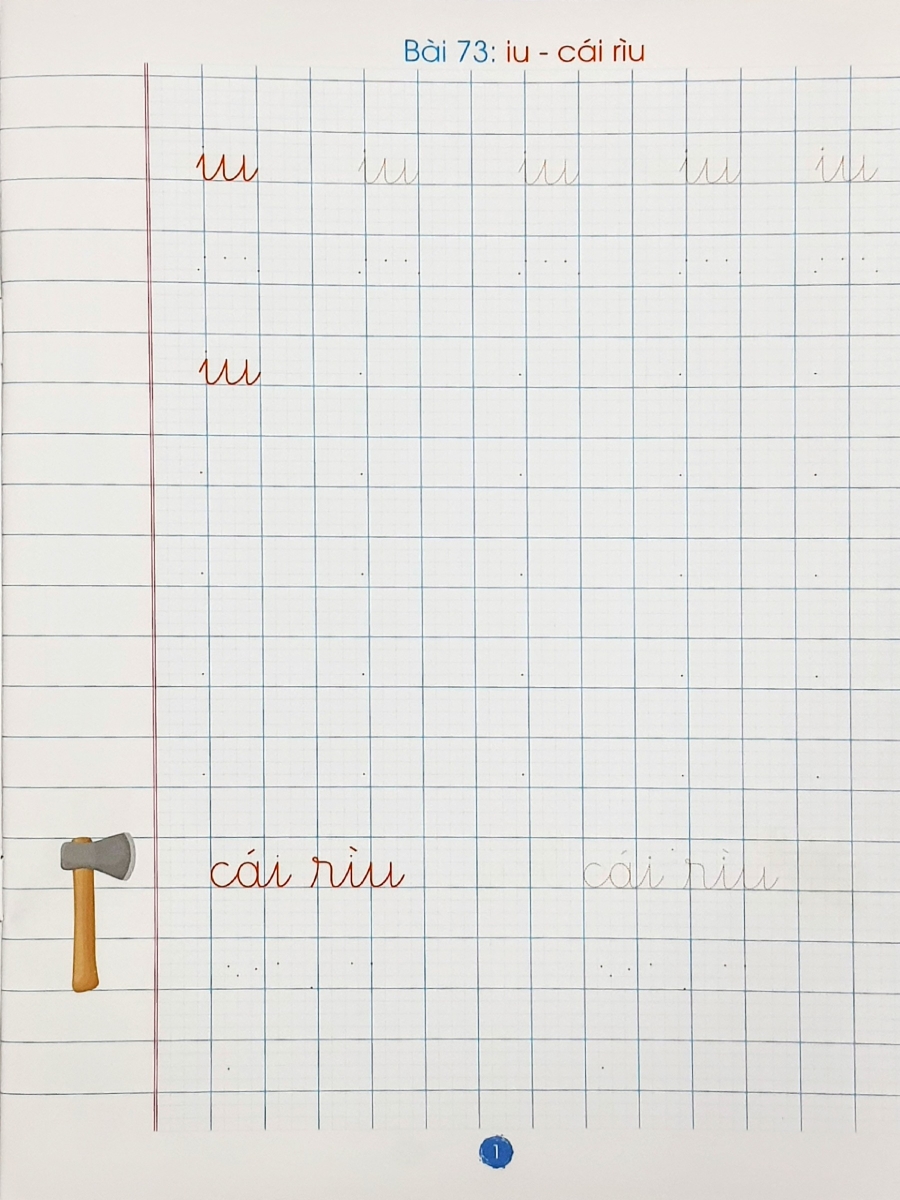 Bài 73: iu - cái rìu
iu iu iu iu iu
iu
cái rìu cái rìu
1